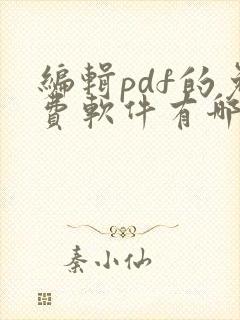 編輯pdf的免
費軟件有哪
秦小仙